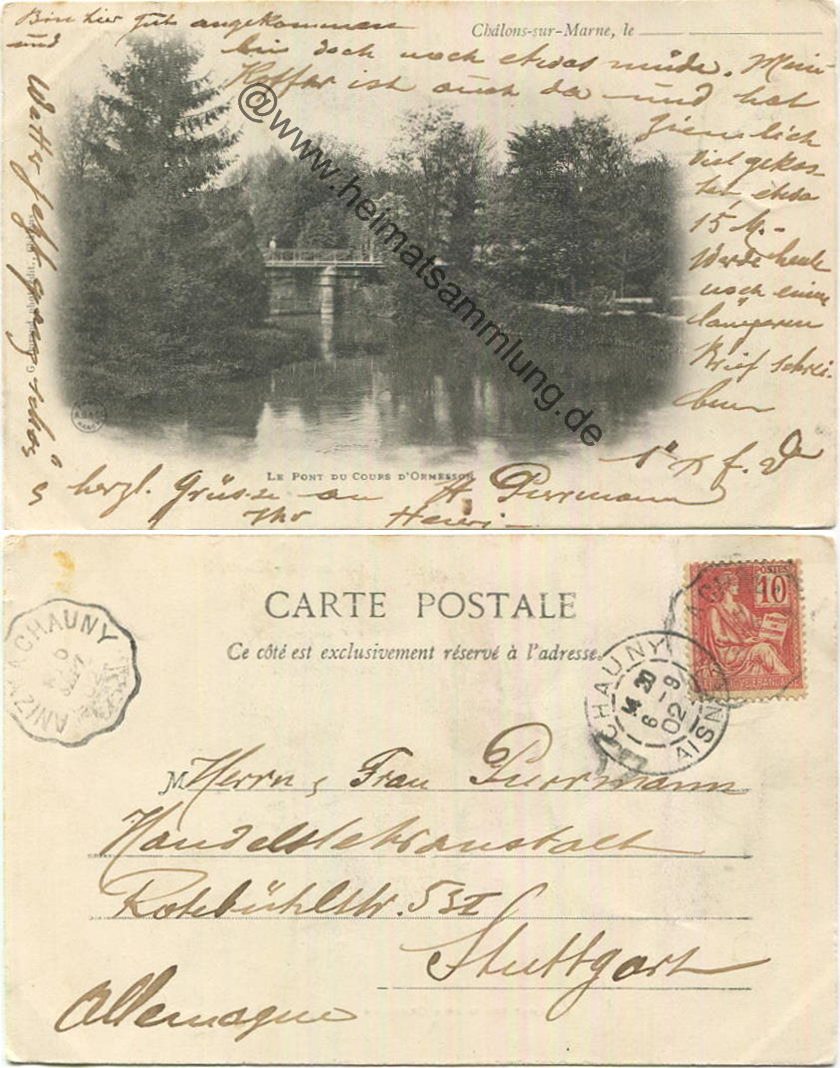 Bin hier gut angekommen
und
Châlons-sur-Marne, le
bin doch noch etwas müde. Mein
Koffer ist auch da und hat
ziemlich
viel gekos-
tet, etwa
15 M.-
Werde heute
noch einen
längeren
Brief schrei-
ben
Wetter sehr ganz schön
@www.heimatsammlung.de
LE PONT DU COURS D'ORMESSON
herzl. Grüsse an H. Purrmann
Ihr Henri
CARTE POSTALE
Ce côté est exclusivement réservé à l'adresse.
POSTES
10
CHAUNY
14 30
6 -9
02
AISNE
CHAUNY
SEPT
M Herrn & Frau Purrmann
Handelslehranstalt
Rotebühlstr. 53 II
Stuttgart
Allemagne